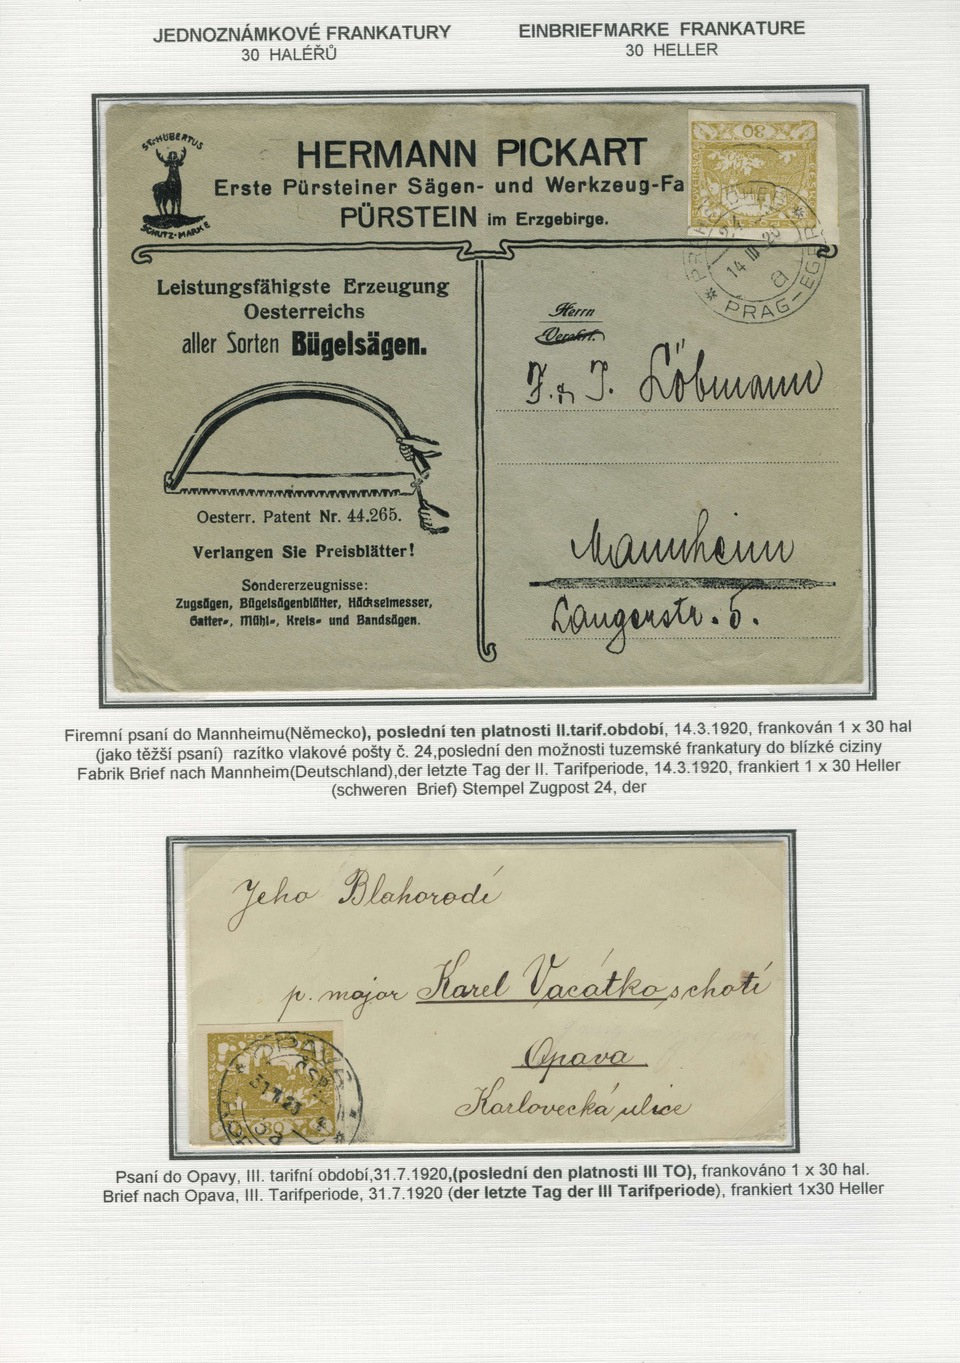 JEDNOZNÁMKOVÉ FRANKATURY
30 HALÉŘŮ
EINBRIEFMARKE FRANKATURE
30 HELLER
ST. HUBERTUS
SCHUTZ-MARKE
HERMANN PICKART
Erste Pürsteiner Sägen- und Werkzeug-Fa
PÜRSTEIN im Erzgebirge.
30
24
14 III 20
a
PRAG-EGER
Leistungsfähigste Erzeugung
Oesterreichs
aller Sorten Bügelsägen.
Oesterr. Patent Nr. 44.265.
Verlangen Sie Preisblätter!
Sondererzeugnisse:
Zugsägen, Bügelsägenblätter, Häckselmesser,
Gatter-, Mühl-, Kreis- und Bandsägen.
Herrn
J. & J. Löbmann
Mannheim
Langerstr. 5.
Firemní psaní do Mannheimu(Německo), poslední ten platnosti II.tarif.období, 14.3.1920, frankován 1 x 30 hal
(jako těžší psaní) razítko vlakové pošty č. 24,poslední den možnosti tuzemské frankatury do blízké ciziny
Fabrik Brief nach Mannheim(Deutschland),der letzte Tag der II. Tarifperiode, 14.3.1920, frankiert 1 x 30 Heller
(schweren Brief) Stempel Zugpost 24, der
Jeho Blahorodí
p. major Karel Vacátko schotí
Opava
Karlovecká ulice
OPAVA
ČSP.
30
Psaní do Opavy, III. tarifní období,31.7.1920,(poslední den platnosti III TO), frankováno 1 x 30 hal.
Brief nach Opava, III. Tarifperiode, 31.7.1920 (der letzte Tag der III Tarifperiode), frankiert 1x30 Heller